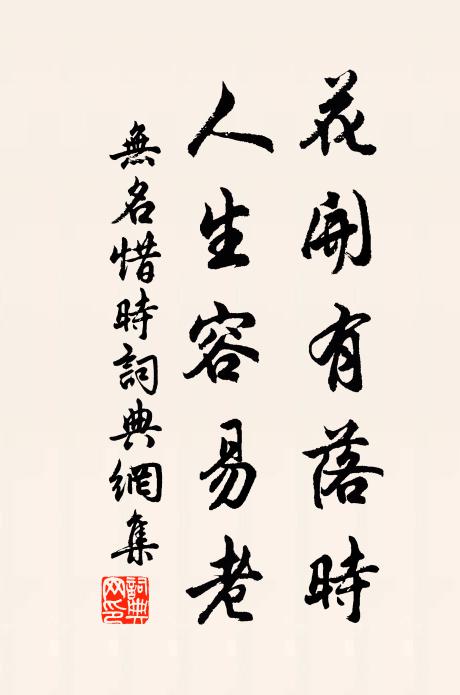 花開有落時
人生容易老
無名惜時詞典網集
詞典网印